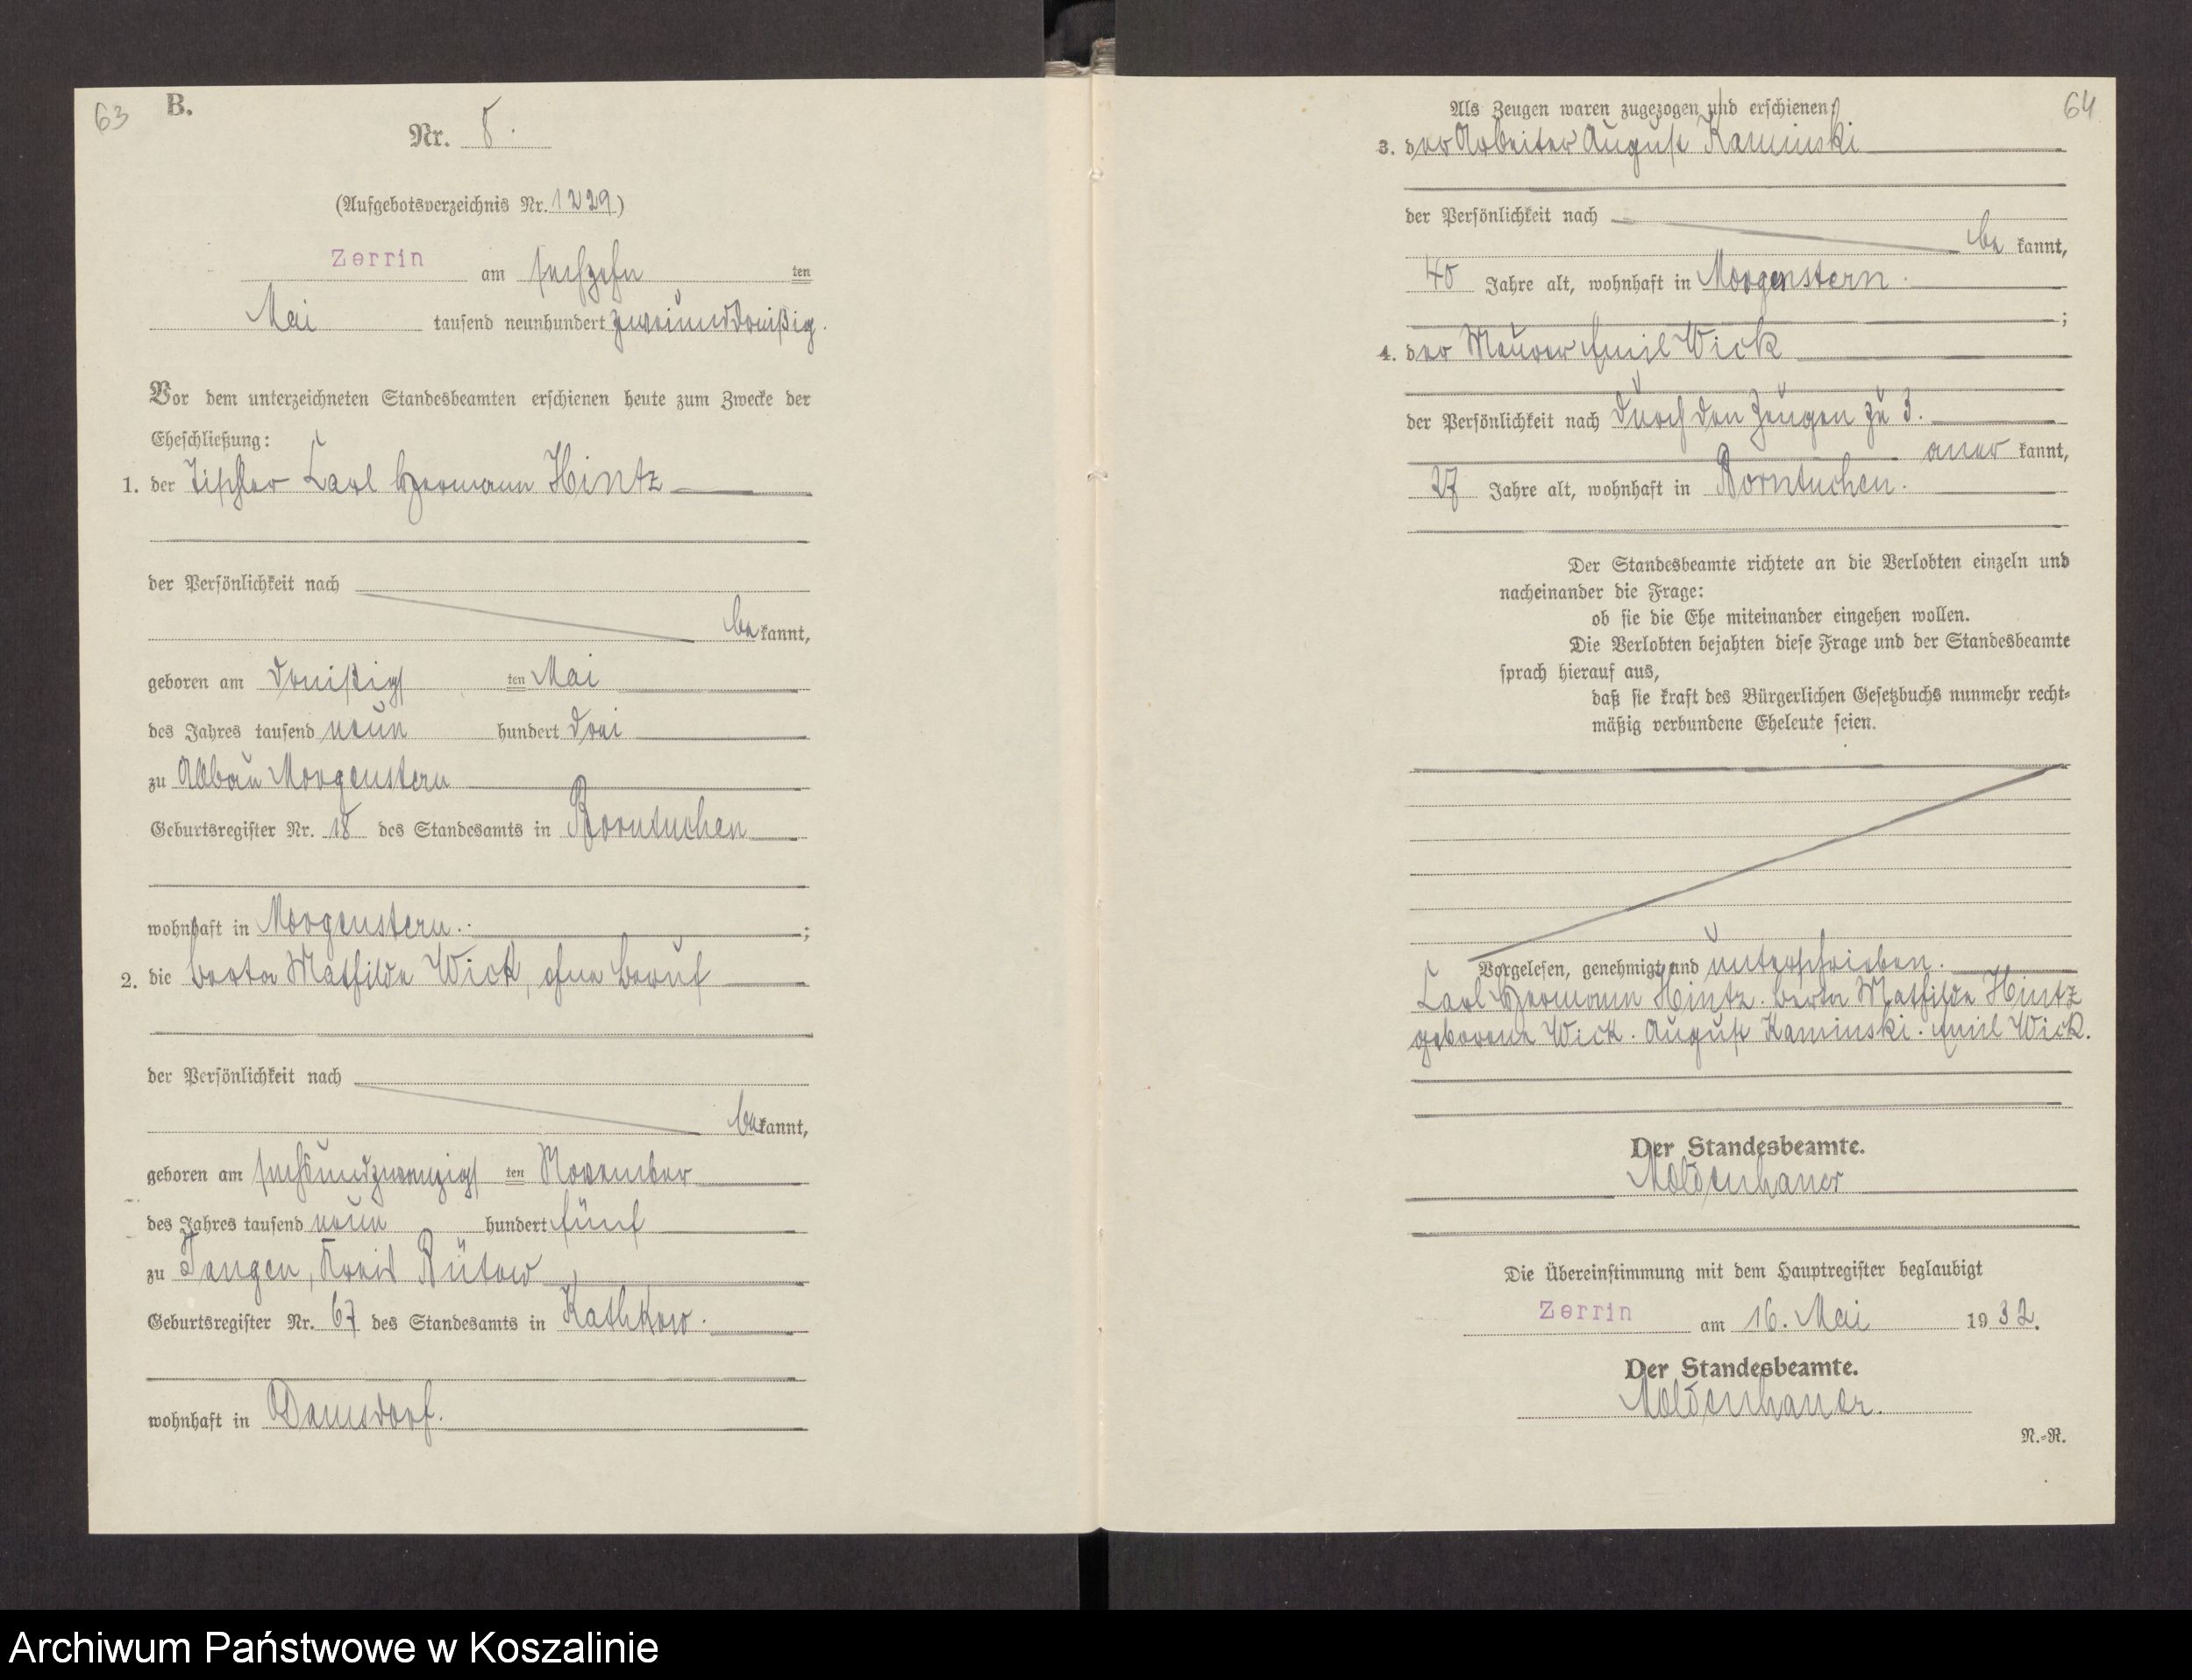 63
B.
Nr. 8.
(Aufgebotsverzeichnis Nr. 1229)
Zerrin am sechzehn ten
Mai tausend neunhundert zweiunddreißig.
Vor dem unterzeichneten Standesbeamten erschienen heute zum Zwecke der
Eheschließung:
1. der Tischler Carl Hermann Hintz
der Persönlichkeit nach
be kannt,
geboren am dreißigs ten Mai
des Jahres tausend neun hundert drei
zu Abbau Morgenstern
Geburtsregister Nr. 18 des Standesamts in Borntuchen
wohnhaft in Morgenstern. ;
2. die Berta Mathilde Wick, ohne Beruf
der Persönlichkeit nach
be kannt,
geboren am sechsundzwanzigs ten November
des Jahres tausend neun hundert fünf
zu Tangen, Kreis Bütow
Geburtsregister Nr. 67 des Standesamts in Kathkow.
wohnhaft in Damsdorf.
64
Als Zeugen waren zugezogen und erschienen:
3. der Arbeiter August Kaminski
der Persönlichkeit nach
be kannt,
40 Jahre alt, wohnhaft in Morgenstern.
;
4. der Maurer Emil Wick
der Persönlichkeit nach durch den Zeugen zu 3.
aner kannt,
27 Jahre alt, wohnhaft in Borntuchen.
Der Standesbeamte richtete an die Verlobten einzeln und
nacheinander die Frage:
ob sie die Ehe miteinander eingehen wollen.
Die Verlobten bejahten diese Frage und der Standesbeamte
sprach hierauf aus,
daß sie kraft des Bürgerlichen Gesetzbuchs nunmehr recht-
mäßig verbundene Eheleute seien.
Vorgelesen, genehmigt und unterschrieben.
Carl Hermann Hintz. Berta Mathilde Hintz
geborene Wick. August Kaminski. Emil Wick.
Der Standesbeamte.
Moldenhauer
Die Übereinstimmung mit dem Hauptregister beglaubigt
Zerrin am 16. Mai 1932.
Der Standesbeamte.
Moldenhauer.
N.-R.
Archiwum Państwowe w Koszalinie